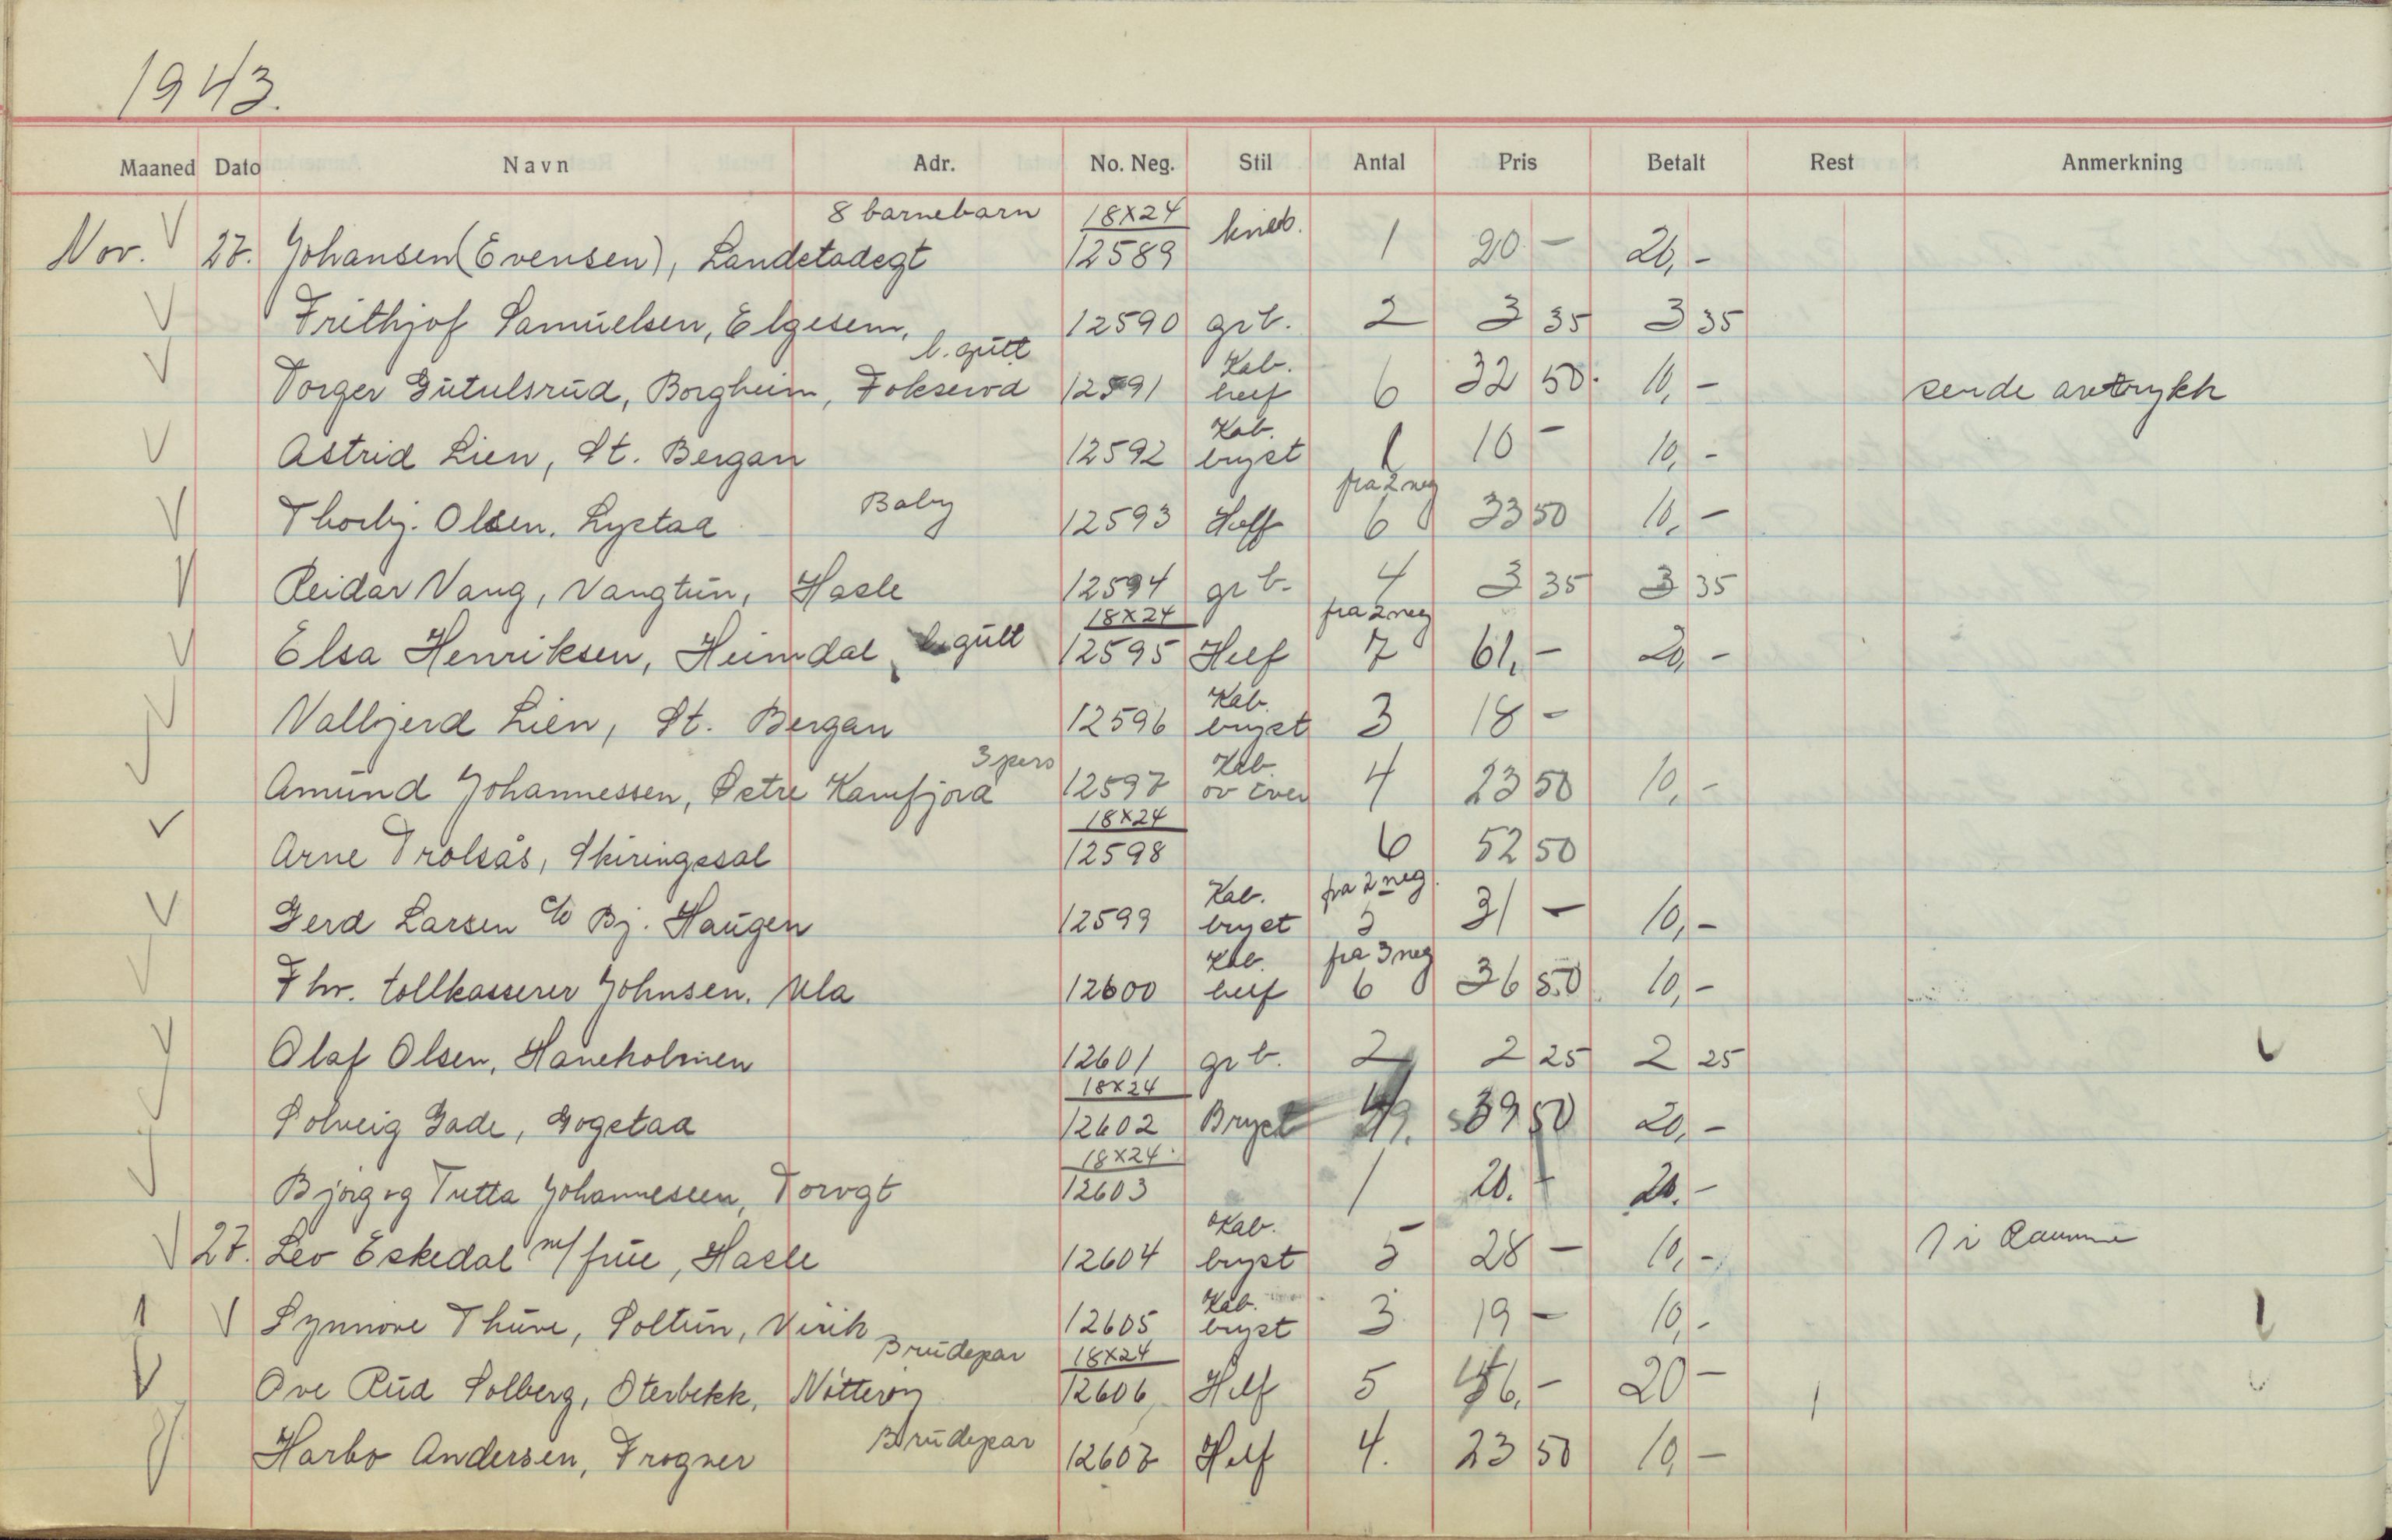 1943.
Maaned Dato Navn Adr. No. Neg. Stil Antal Pris Betalt Rest Anmerkning
8 barnebarn 18x24
Nov. 27. Johansen (Evensen), Landstadsgt 12589 kneb. 1 20 - 20,-
Frithjof Samuelsen, Elgesem, 12590 grb. 2 3 35 3 35
l. gutt Kab.
Torger Gutulsrud, Borgheim, Fokserød 12591 helf 6 32 50 10,- sende avtrykk
Kab.
Astrid Lien, St. Bergan 12592 bryst 1 10 - 10,-
Baby fra 2 neg
Thorbj. Olsen, Lystad 12593 Helf 6 33 50 10,-
Reidar Vang, Vangtun, Hasle 12594 grb. 4 3 35 3 35
18x24 fra 2 neg
Elsa Henriksen, Heimdal, l. gutt 12595 Helf 7 61,- 20,-
Kab.
Valbjerd Lien, St. Bergan 12596 bryst 3 18 -
3 pers Kab.
Amund Johannessen, Østre Kamfjord 12597 ov kne 4 23 50 10,-
18x24
Arne Trolsås, Skiringssal 12598 6 52 50
Kab. fra 2 neg.
Gerd Larsen c/o Bj. Haugen 12599 bryst 5 31 - 10,-
Kab. fra 3 neg
Fhr. tollkasserer Johnsen, Ula 12600 helf 6 36 50 10,-
Olaf Olsen, Haneholmen 12601 grb. 2 2 25 2 25
18x24
Solveig Gade, Gogstad 12602 Bryst 39 50 20,-
18x24
Bjørg og Tutta Johannessen, Torvgt 12603 1 20.- 20.-
Kab.
27. Leo Eskedal m/ frue, Hasle 12604 bryst 5 28 - 10,- 1 i Ramme
Kab.
Synnøve Thune, Soltun, Virik 12605 bryst 3 19 - 10,-
Brudepar 18x24
Ove Rud Solberg, Oterbekk, Nøtterøy 12606 Helf 5 46,- 20 -
Brudepar
Harbo Andersen, Frogner 12607 Helf 4. 23 50 10,-